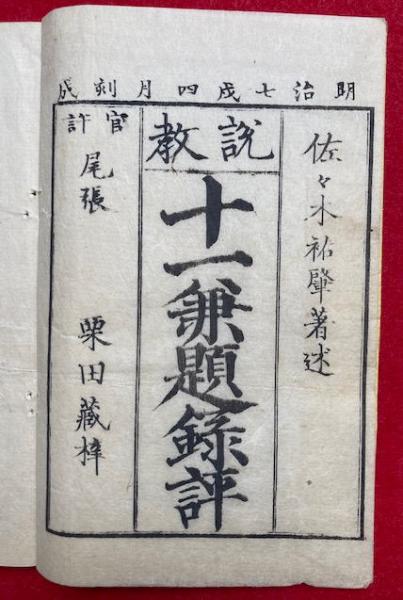 明治七戌四月刻成
佐々木祐肇著述
說教
十一兼題録評
官許
尾張
栗田藏梓